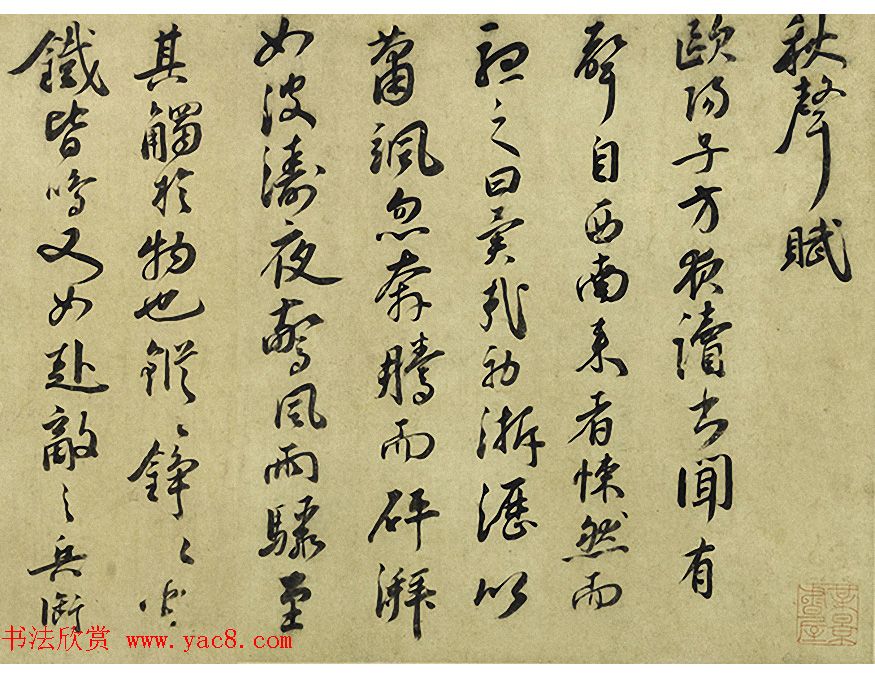 秋聲賦
歐陽子方夜讀書聞有
聲自西南来者悚然而
聽之曰異哉初淅瀝以
蕭颯忽奔騰而砰湃
如波濤夜驚風雨驟至
其觸於物也鏦〻錚〻金
鐵皆鳴又如赴敵之兵銜
书法欣赏 www.yac8.com